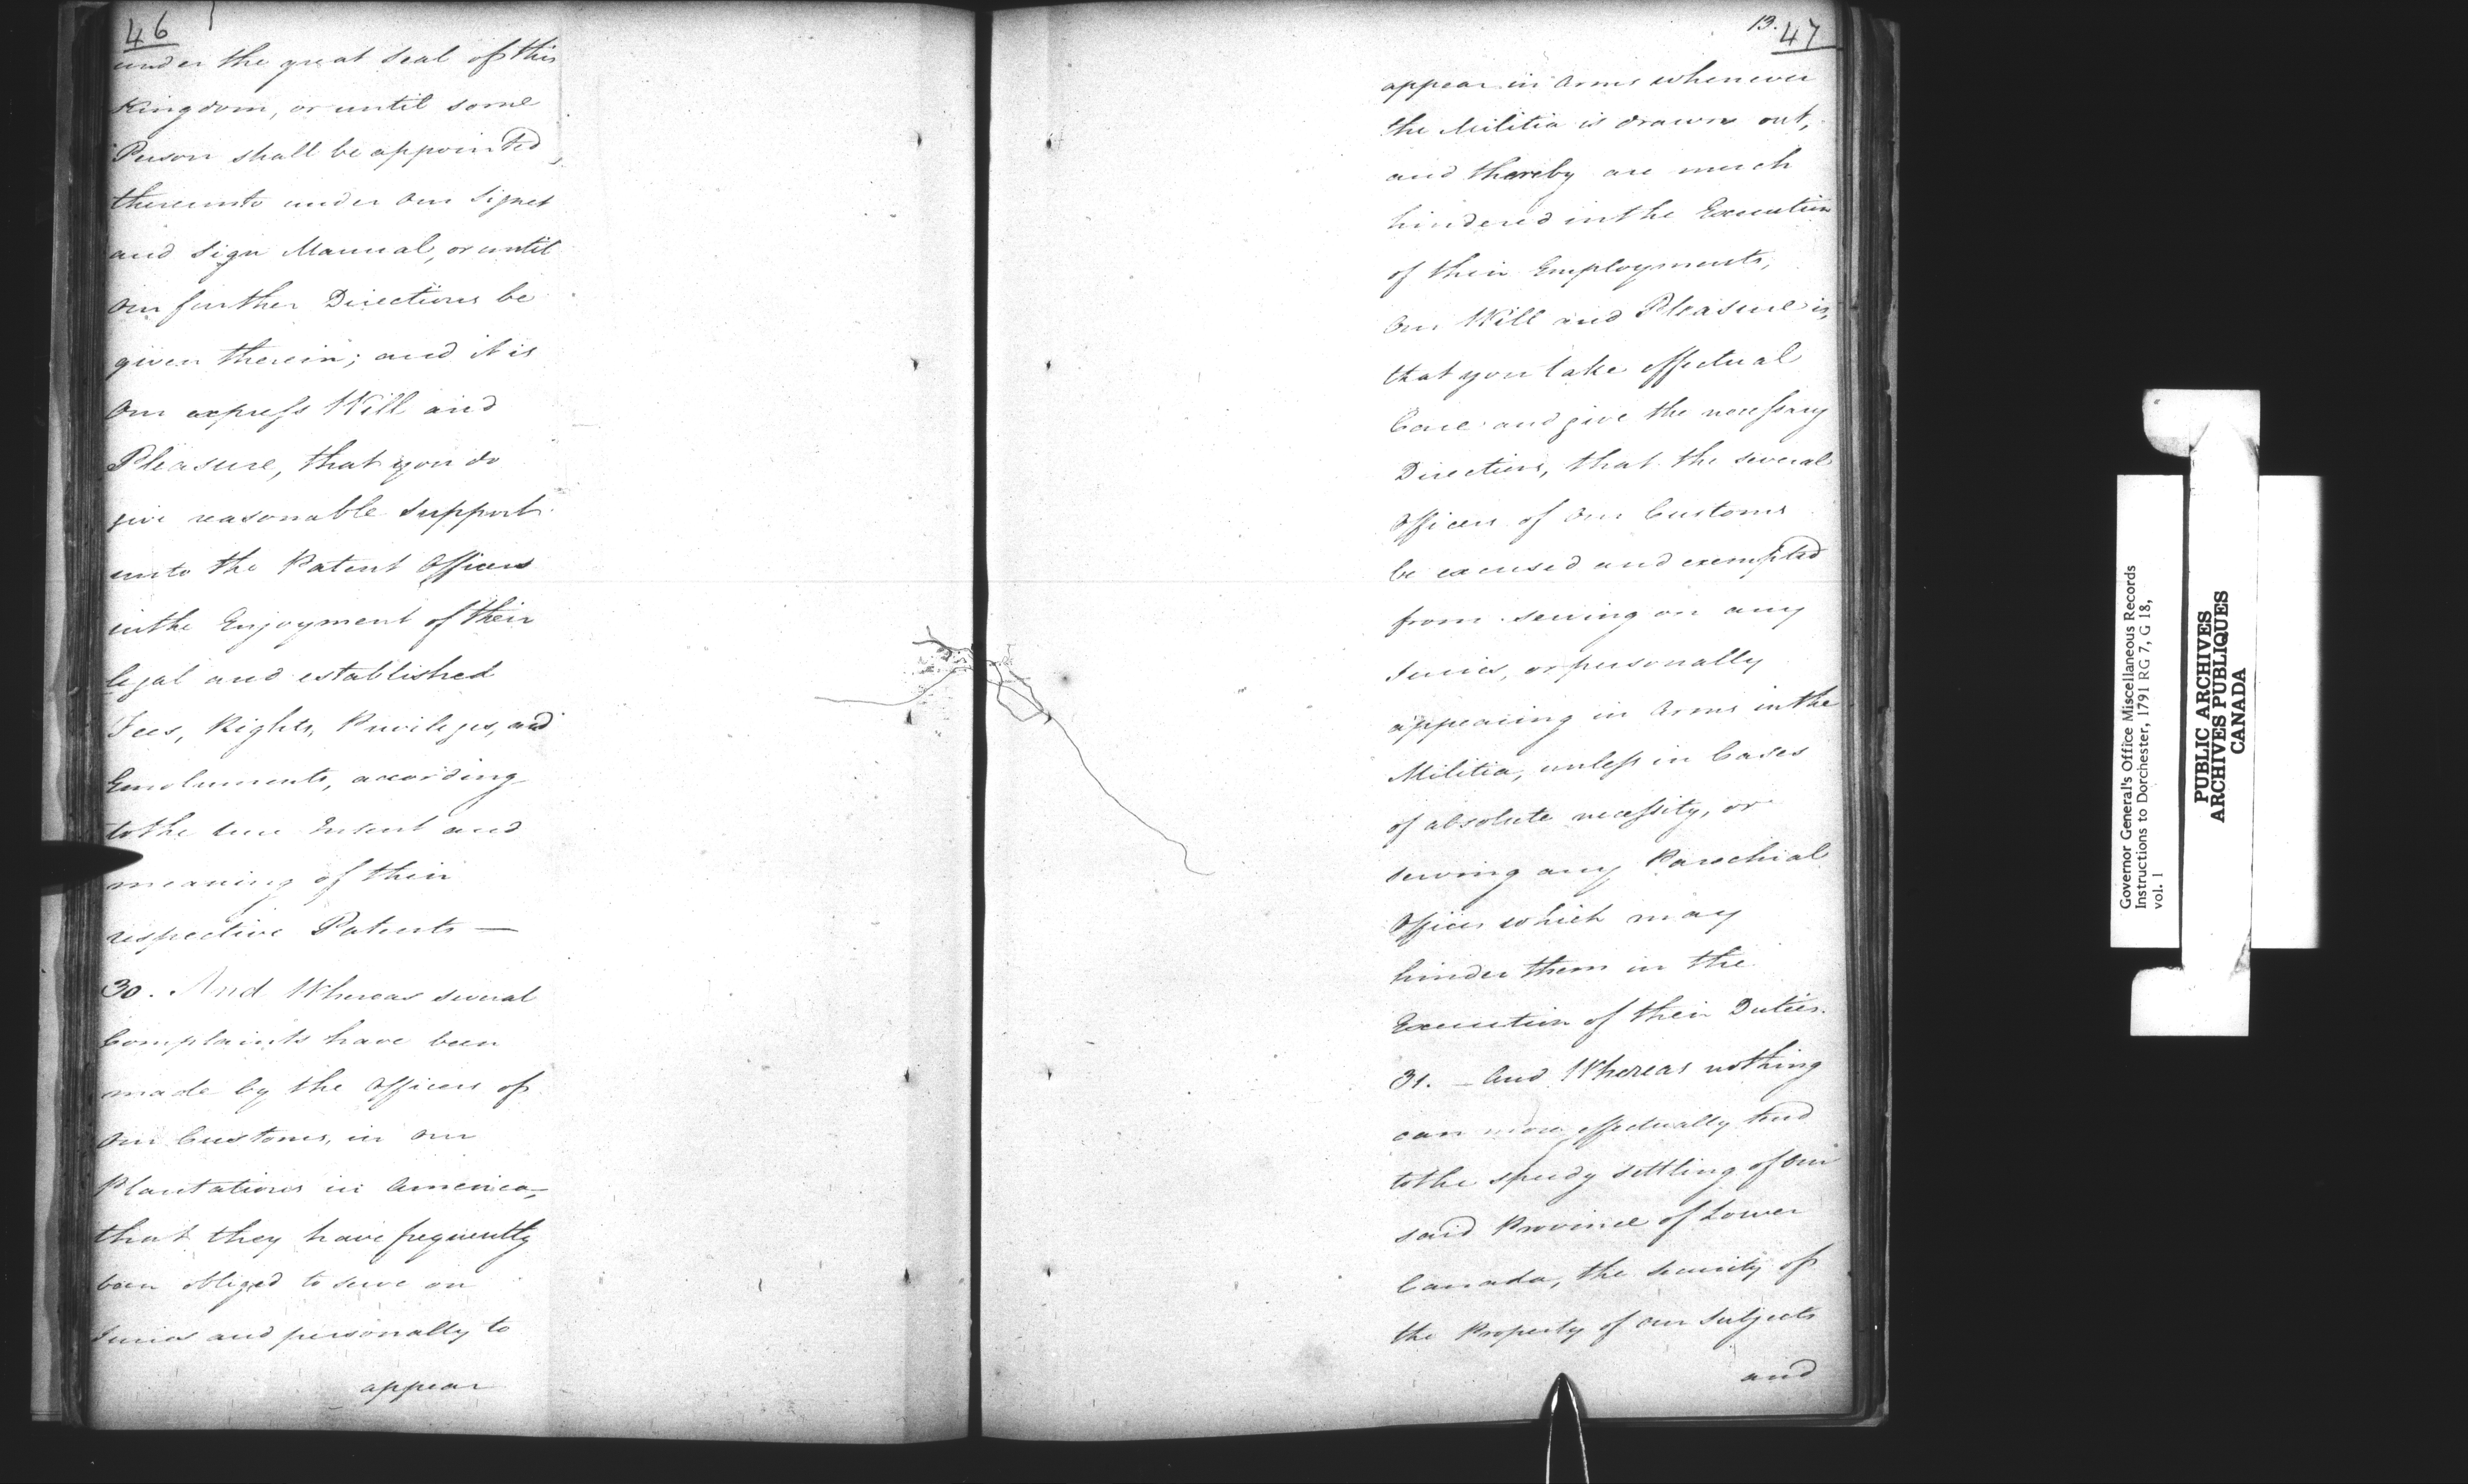 46
under the great Seal of this
Kingdom, or until some
Person shall be appointed,
thereunto under Our Signet
and Sign Manual, or until
Our further Directions be
given therein; and it is
Our express Will and
Pleasure, that you do
give reasonable support
unto the Patent Officers
in the Enjoyment of their
legal and established
Fees, Rights, Privileges, and
Emoluments, according
to the true Intent and
meaning of their
respective Patents —
30. And Whereas several
Complaints have been
made by the Officers of
Our Customs, in Our
Plantations in America,
that they have frequently
been obliged to serve on
Juries and personally to
appear
13. 47
appear in Arms whenever
the Militia is drawn out,
and thereby are much
hindered in the Execution
of their Employments,
Our Will and Pleasure is,
that you take effectual
Care and give the necessary
Directions, that the several
Officers of Our Customs
be excused and exempted
from serving on any
Juries, or personally
appearing in Arms in the
Militia, unless in Cases
of absolute necessity, or
serving any Parochial
Offices which may
hinder them in the
Execution of their Duties.
31. — And Whereas nothing
can more effectually tend
to the speedy settling of Our
said Province of Lower
Canada, the security of
the Property of our Subjects
and
Governor General's Office Miscellaneous Records
Instructions to Dorchester, 1791 RG 7, G 18,
vol. 1
PUBLIC ARCHIVES
ARCHIVES PUBLIQUES
CANADA